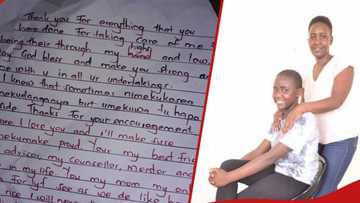 Thank you For everything that you
have done. For taking care of me
being there through my highs and low.
May God bless and make you strong an
be with u in all ur undertakings.
I know that sometimes nimekukosea
but umekuwa tu hapa
side Thanks for your encouragement
I love you and I'll make sure
make proud You my best frie
advisor, my counsellor, mentor and
in my life. You my mom
for lyf see as we do like
I will need